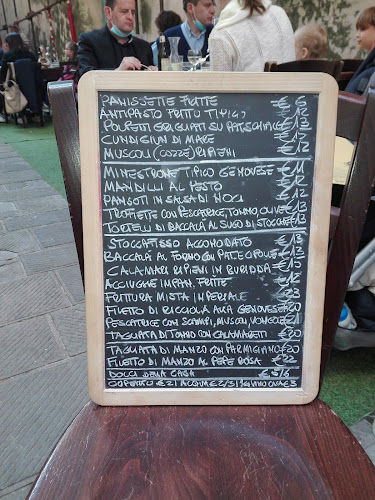 PANISSETTE FRITTE €6
ANTIPASTO FRITTO TIPICO €12
POLPETTI GRIGLIATI SU €13
CUNDIGIUN DI MARE €12
MUSCOLI (COZZE) RIPIENI €12
MINESTRONE TIPICO GENOVESE €11
MANDILLI AL PESTO €12
PANSOTI IN SALSA DI NOCI €12
TROFIETTE CON PESCATRICE, TONNO, OLIVE €13
TORTELLI DI BACCALÀ AL SUGO DI STOCCHE €13
STOCCAFISSO ACCOMODATO €13
BACCALÀ AL FORNO CON PAT E CIPOLLE €13
CALAMARI RIPIENI IN BURIDDA €15
ACCIUGHE IMPAN. FRITTE €12
FRITTURA MISTA IMPERIALE €23
FILETTO DI RICCIOLA ALLA GENOVESE €20
PESCATRICE CON SCAMPI, MUSCOLI, VONGOLE €21
TAGLIATA DI TONNO CON CALAMARETTI €20
TAGLIATA DI MANZO CON PARMIGIANO €20
FILETTO DI MANZO AL PEPE ROSA €22
DOLCI DELLA CASA €5/6
COPERTO €2 | ACQUA €2/3 | €3